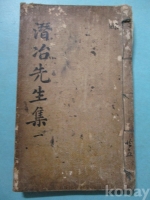 潛冶先生集 一
kobay